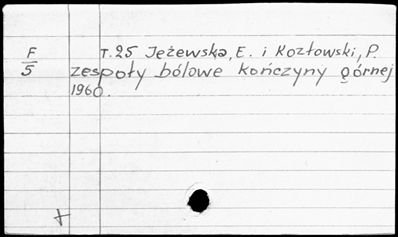 F T. 25 Jeżewska, E. i Kozłowski, P.
5 zespoły bólowe kończyny górnej
1960.